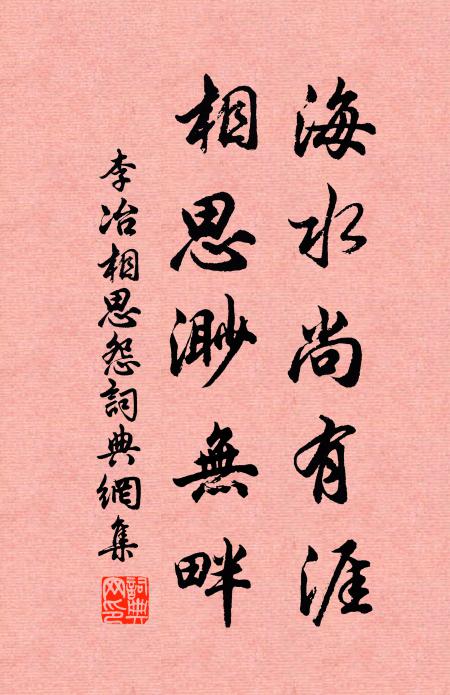 海水尚有涯
相思渺無畔
李冶相思怨詞典網集
詞典網印